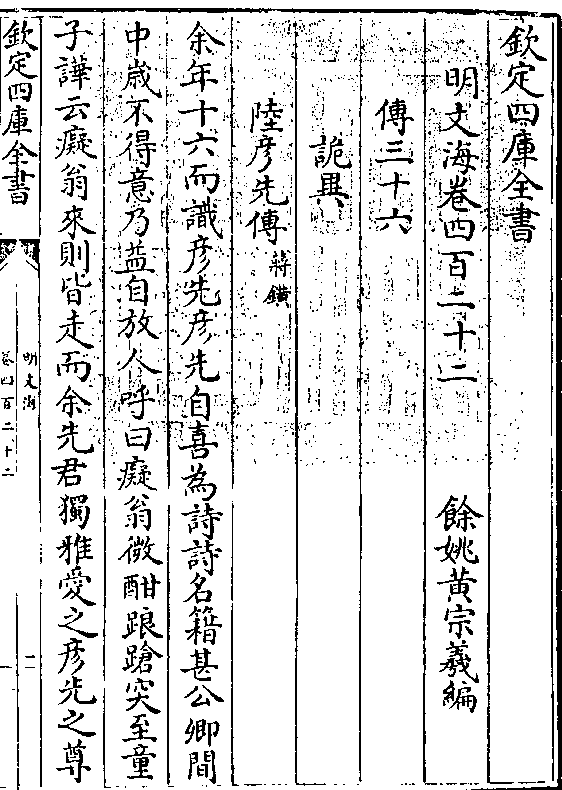 欽定四庫全書
明文海卷四百二十二
餘姚黃宗羲編
傳三十六
詭異
陸彥先傳
蔣鐄
余年十六而識彥先彥先自喜為詩詩名籍甚公卿間
中歲不得意乃益自放人呼曰癡翁微酣踉蹌突至童
子譁云癡翁來則皆走而余先君獨雅愛之彥先之尊
欽定四庫全書
明文海
卷四百二十二